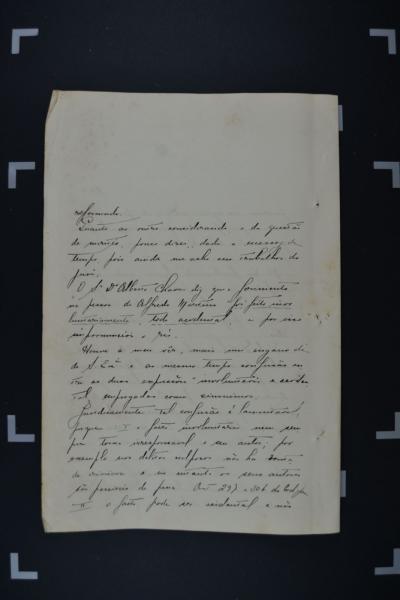 reformado.
Quanto ao outro considerando e da questão
de março, pouco direi, dado a escassez de
tempo, pois ainda me acho com trabalhos do
jury.
O Sr Dr Albino Chaves diz que o ferimento
na pessoa de Alfredo Martins foi feito invo
luntariamente, todo accidental, e por isso
impronunciou o réo.
Houve a meu vêr, mais um engano de
de S. Exa e ao mesmo tempo confusão en
tre as duas expressões involuntario e acciden
tal empregadas como synonimos.
Juridicamente tal confusão é
porque I o facto involuntario nem sem
pre torna irresponsavel o seu autor; por
exemplo nos delictos culposos não há
de criminoso e no emtanto os seus autores
são passiveis de pena Art 297 e 306 do Cod. Pen.
II o facto pode ser accidental e não